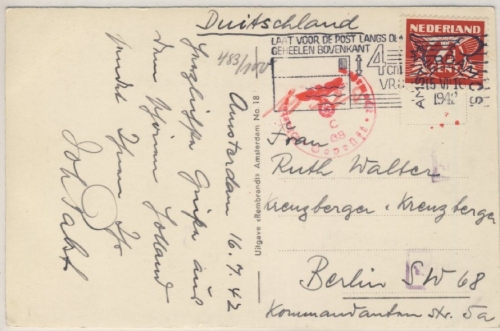 Duitschland
LAAT VOOR DE POST LANGS DE
GEHEELEN BOVENKANT
4 cM
VRIJ
NEDERLAND
AMSTERDAM
1942
453/100
Amsterdam 16.7.42
Herzliche Grüße aus
dem schönen Holland
sendet Ihnen Ihr
Joh.
Uitgave «Rembrandt» Amsterdam No. 18
Frau
Ruth Walter
Kreuzberger + Kreuzberger
Berlin SW 68
Kommandanten str. 5a